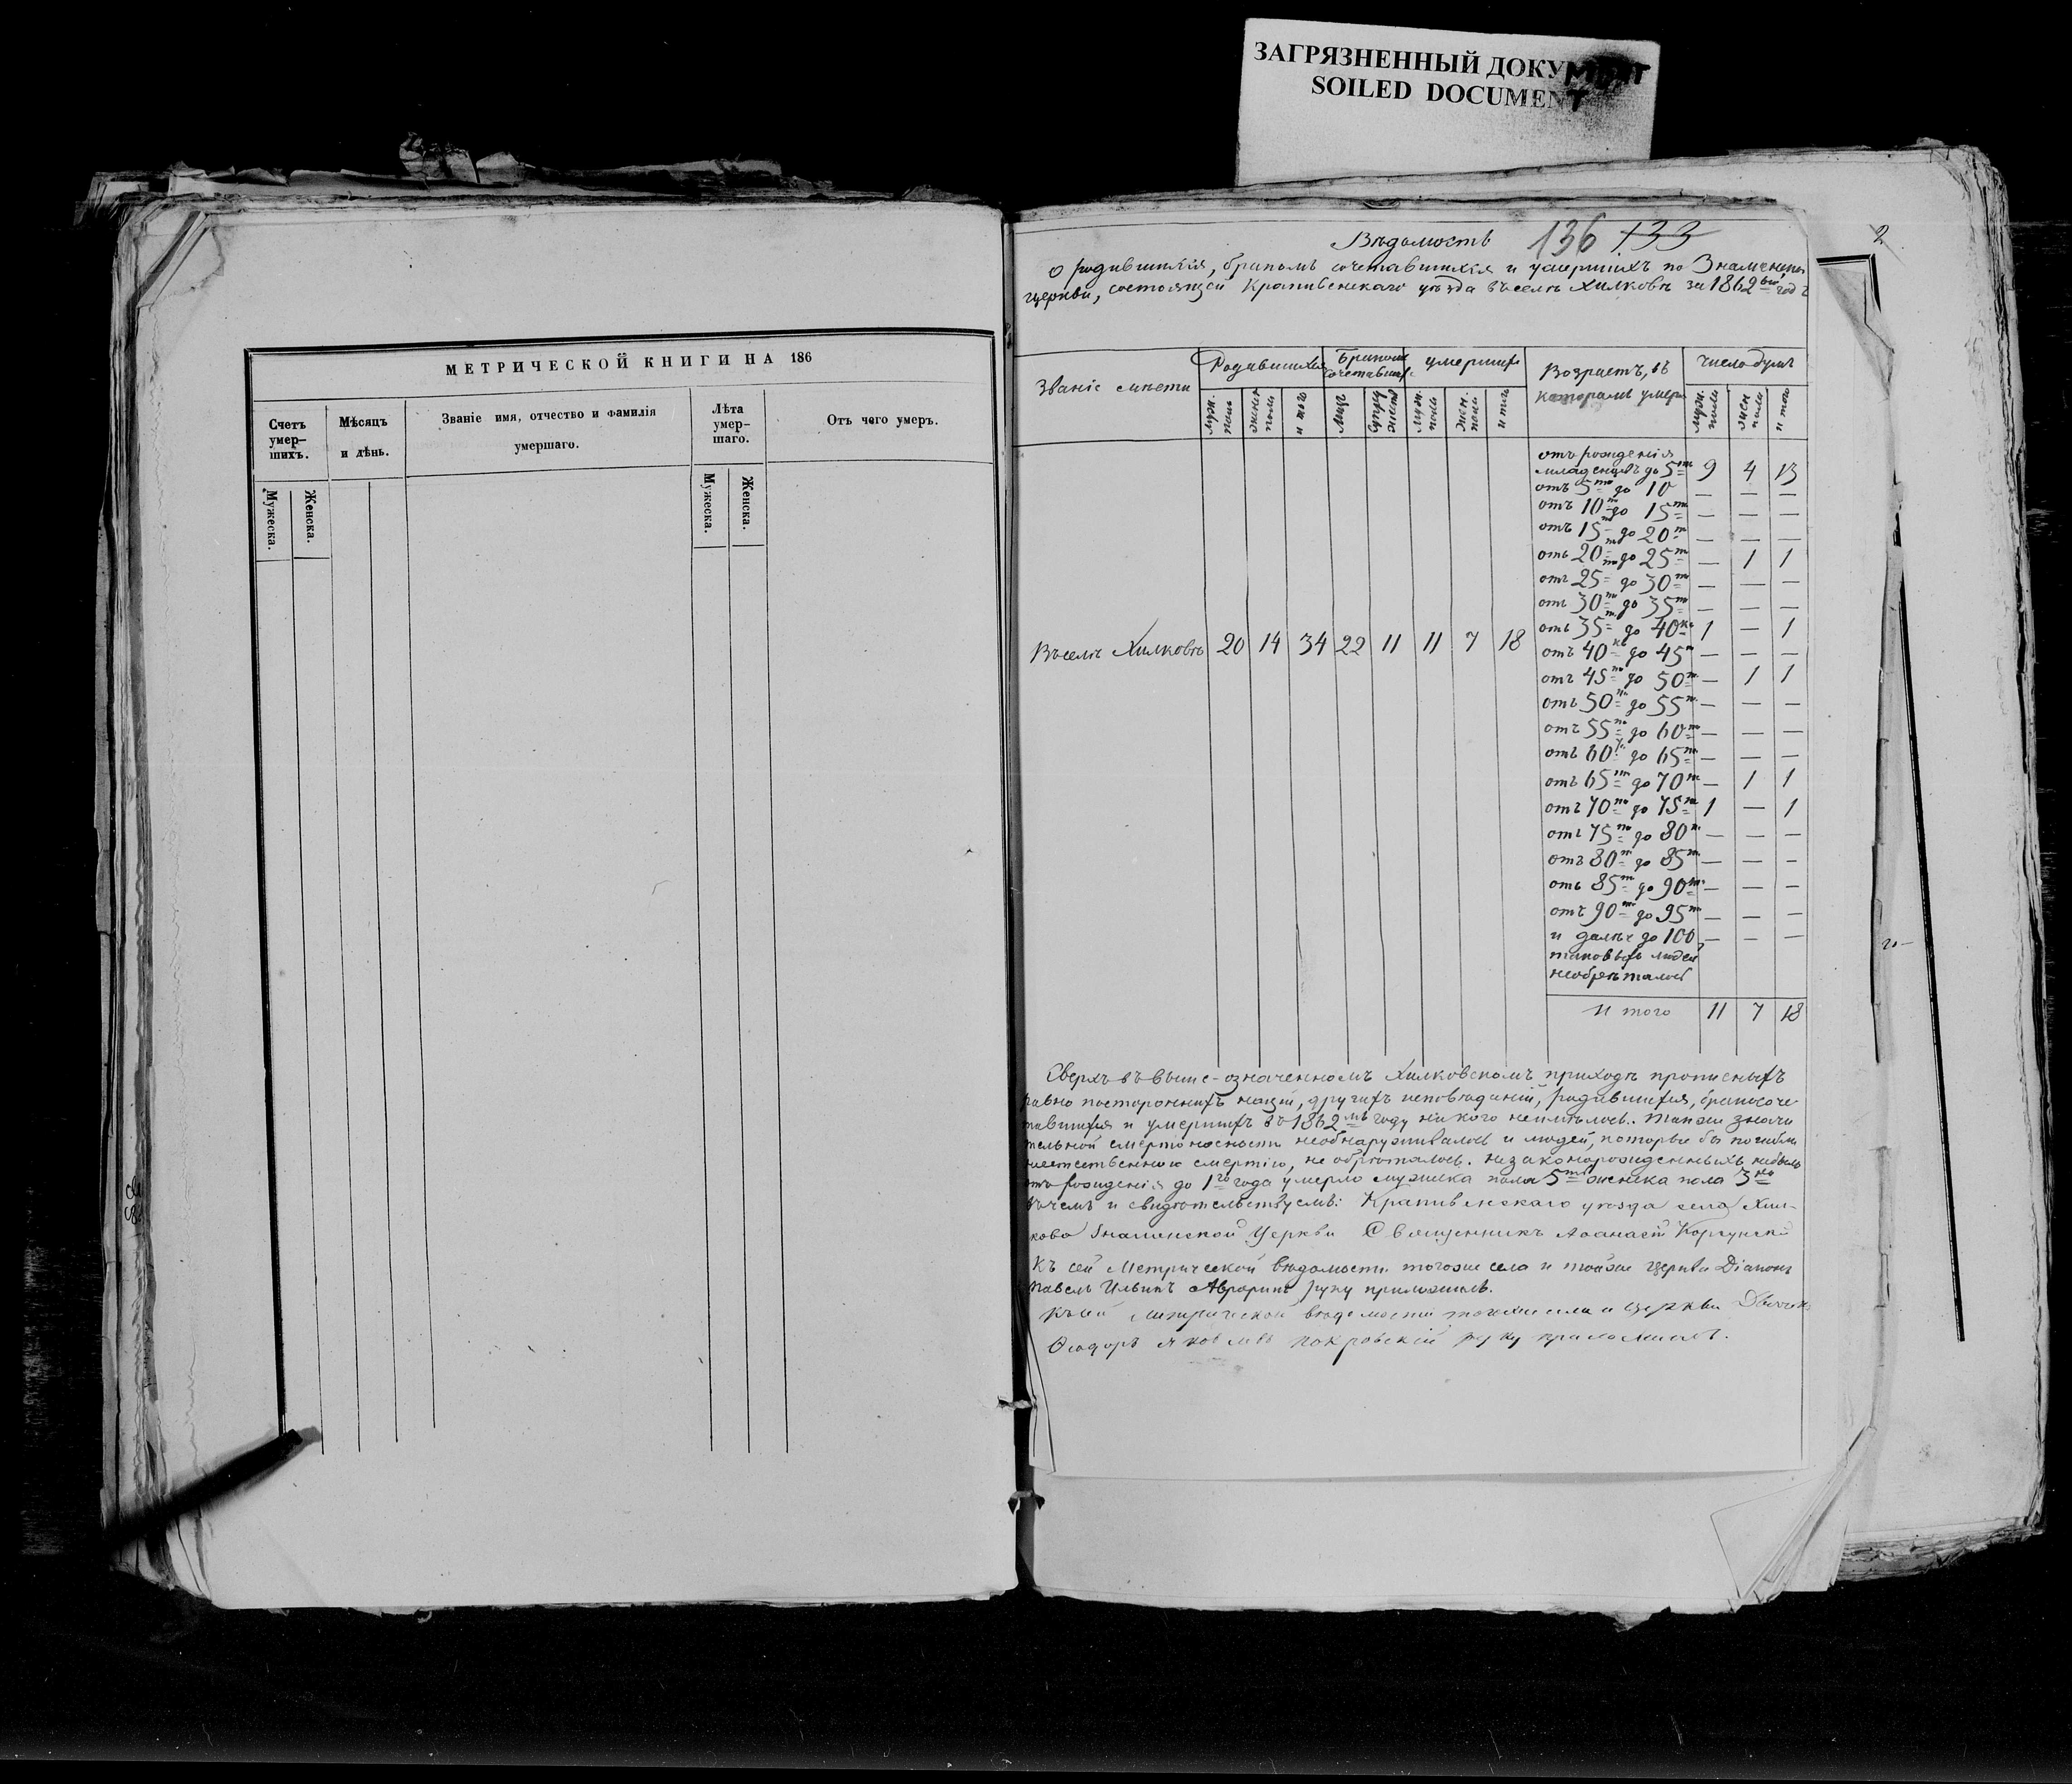 ЗАГРЯЗНЕННЫЙ ДОКУМЕНТ
SOILED DOCUMENT
МЕТРИЧЕСКОЙ КНИГИ НА 186
Счетъ умер- шихъ.
Мѣсяцъ и дѣнь.
Званіе имя, отчество и фамилія умершаго.
Лѣта умер- шаго.
Отъ чего умеръ.
Мужеска.
Женска.
Мужеска.
Женска.
Вѣдомость 136 133
о родившихся, бракомъ сочетавшихся и умершихъ по Знаменской
церкви, состоящей Крапивенскаго уѣзда въ селѣ Хилковѣ за 1862 годъ
Званіе мѣста
Родившихся
Бракомъ сочетавших
умершихъ
Возрастъ, въ которомъ умерли
Число душъ
муж. пола
женск пола
и того
муж. пола
жен. пола
и того
муж. пола
жен пола
и того
отъ рожденія
младенцевъ до 5ти 9 4 13
отъ 5ти до 10 — — —
отъ 10ти до 15ти — — —
отъ 15ти до 20ти — — —
отъ 20ти до 25ти — 1 1
отъ 25ти до 30ти — — —
отъ 30ти до 35ти — — —
отъ 35ти до 40ка 1 — 1
Въ селѣ Хилковѣ 20 14 34 22 11 11 7 18
отъ 40ка до 45ти — — —
отъ 45ти до 50ти — 1 1
отъ 50ти до 55ти — — —
отъ 55ти до 60ти — — —
отъ 60ти до 65ти — — —
отъ 65ти до 70ти — 1 1
отъ 70ти до 75ти 1 — 1
отъ 75ти до 80ти — — —
отъ 80ти до 85ти — — —
отъ 85ти до 90ти — — —
отъ 90ти до 95ти — — —
и далѣе до 100 — — —
таковыхъ людей
необрѣталось
И того 11 7 18
Сверхъ въ выше-означенномъ Хилковскомъ приходѣ прописныхъ
равно постороннихъ націй, другихъ исповѣданій, родившихся, бракосоче
тавшихся и умершихъ въ 1862мъ году никого неимѣлось. Также значи
тельной смертоносности необнаруживалось и людей, которые бы погибли
неестественною смертію, не обрѣталось. незаконорожденныхъ небыло
отъ рожденія до 1го года умерло мужеска пола 5ть женска пола 3
въ чемъ и свидѣтельствуемъ: Крапивенскаго уѣзда села Хил-
кова Знаменской Церкви Священникъ Аѳанасій
Къ сей Метрической вѣдомости тогоже села и тойже церкви Діаконъ
Павелъ Ильинъ Авроринъ руку приложилъ.
Къ сей метрической вѣдомости тогоже села и церкви
Ѳеодоръ Яковлевъ Покровскій руку приложилъ.
2